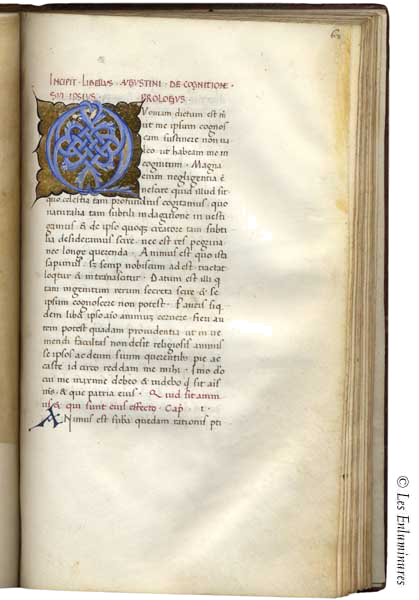 68
INCIPIT LIBELLUS AUGUSTINI DE COGNITIONE
SUI IPSIUS PROLOGUS
Voniam dictum est m̄
ut me ipsum cognos
cam sustinere non ua
leo ut habeam me in
cognitum. Magna
enim negligentia ē
nescire quid illud sit
quo celestia tam profunditus cogitamus quo
naturalia tam subtili indagatione inuesti
gamus & de ipso quoque creatore tam subti
lia desideramus scire. nec est res peregrina
nec longe querenda. Animus est quo ista
sapimus. Sꝫ semp nobiscum adest tractat
loqtur & intra
Datum est illi q
tam ingentium rerum secreta scire & se
ipsum cognoscere non potest. Facilis siq
dem libā ipso aīo animuꝫ cernere. Fieri au
tem potest quadam prouidentia ut inueni
endi facultas non desit religiosis animis
se ipsos ac deum suum querentibus pie ac
caste idcirco reddam me mihi
cui me maxime debeo & uidebo qͥ sit aīs
& que patria eius. Quid sit anim
us & qui sunt eius effectō. Cap. I.
ANimus est subā quedam rationis pti
© Les Enluminures